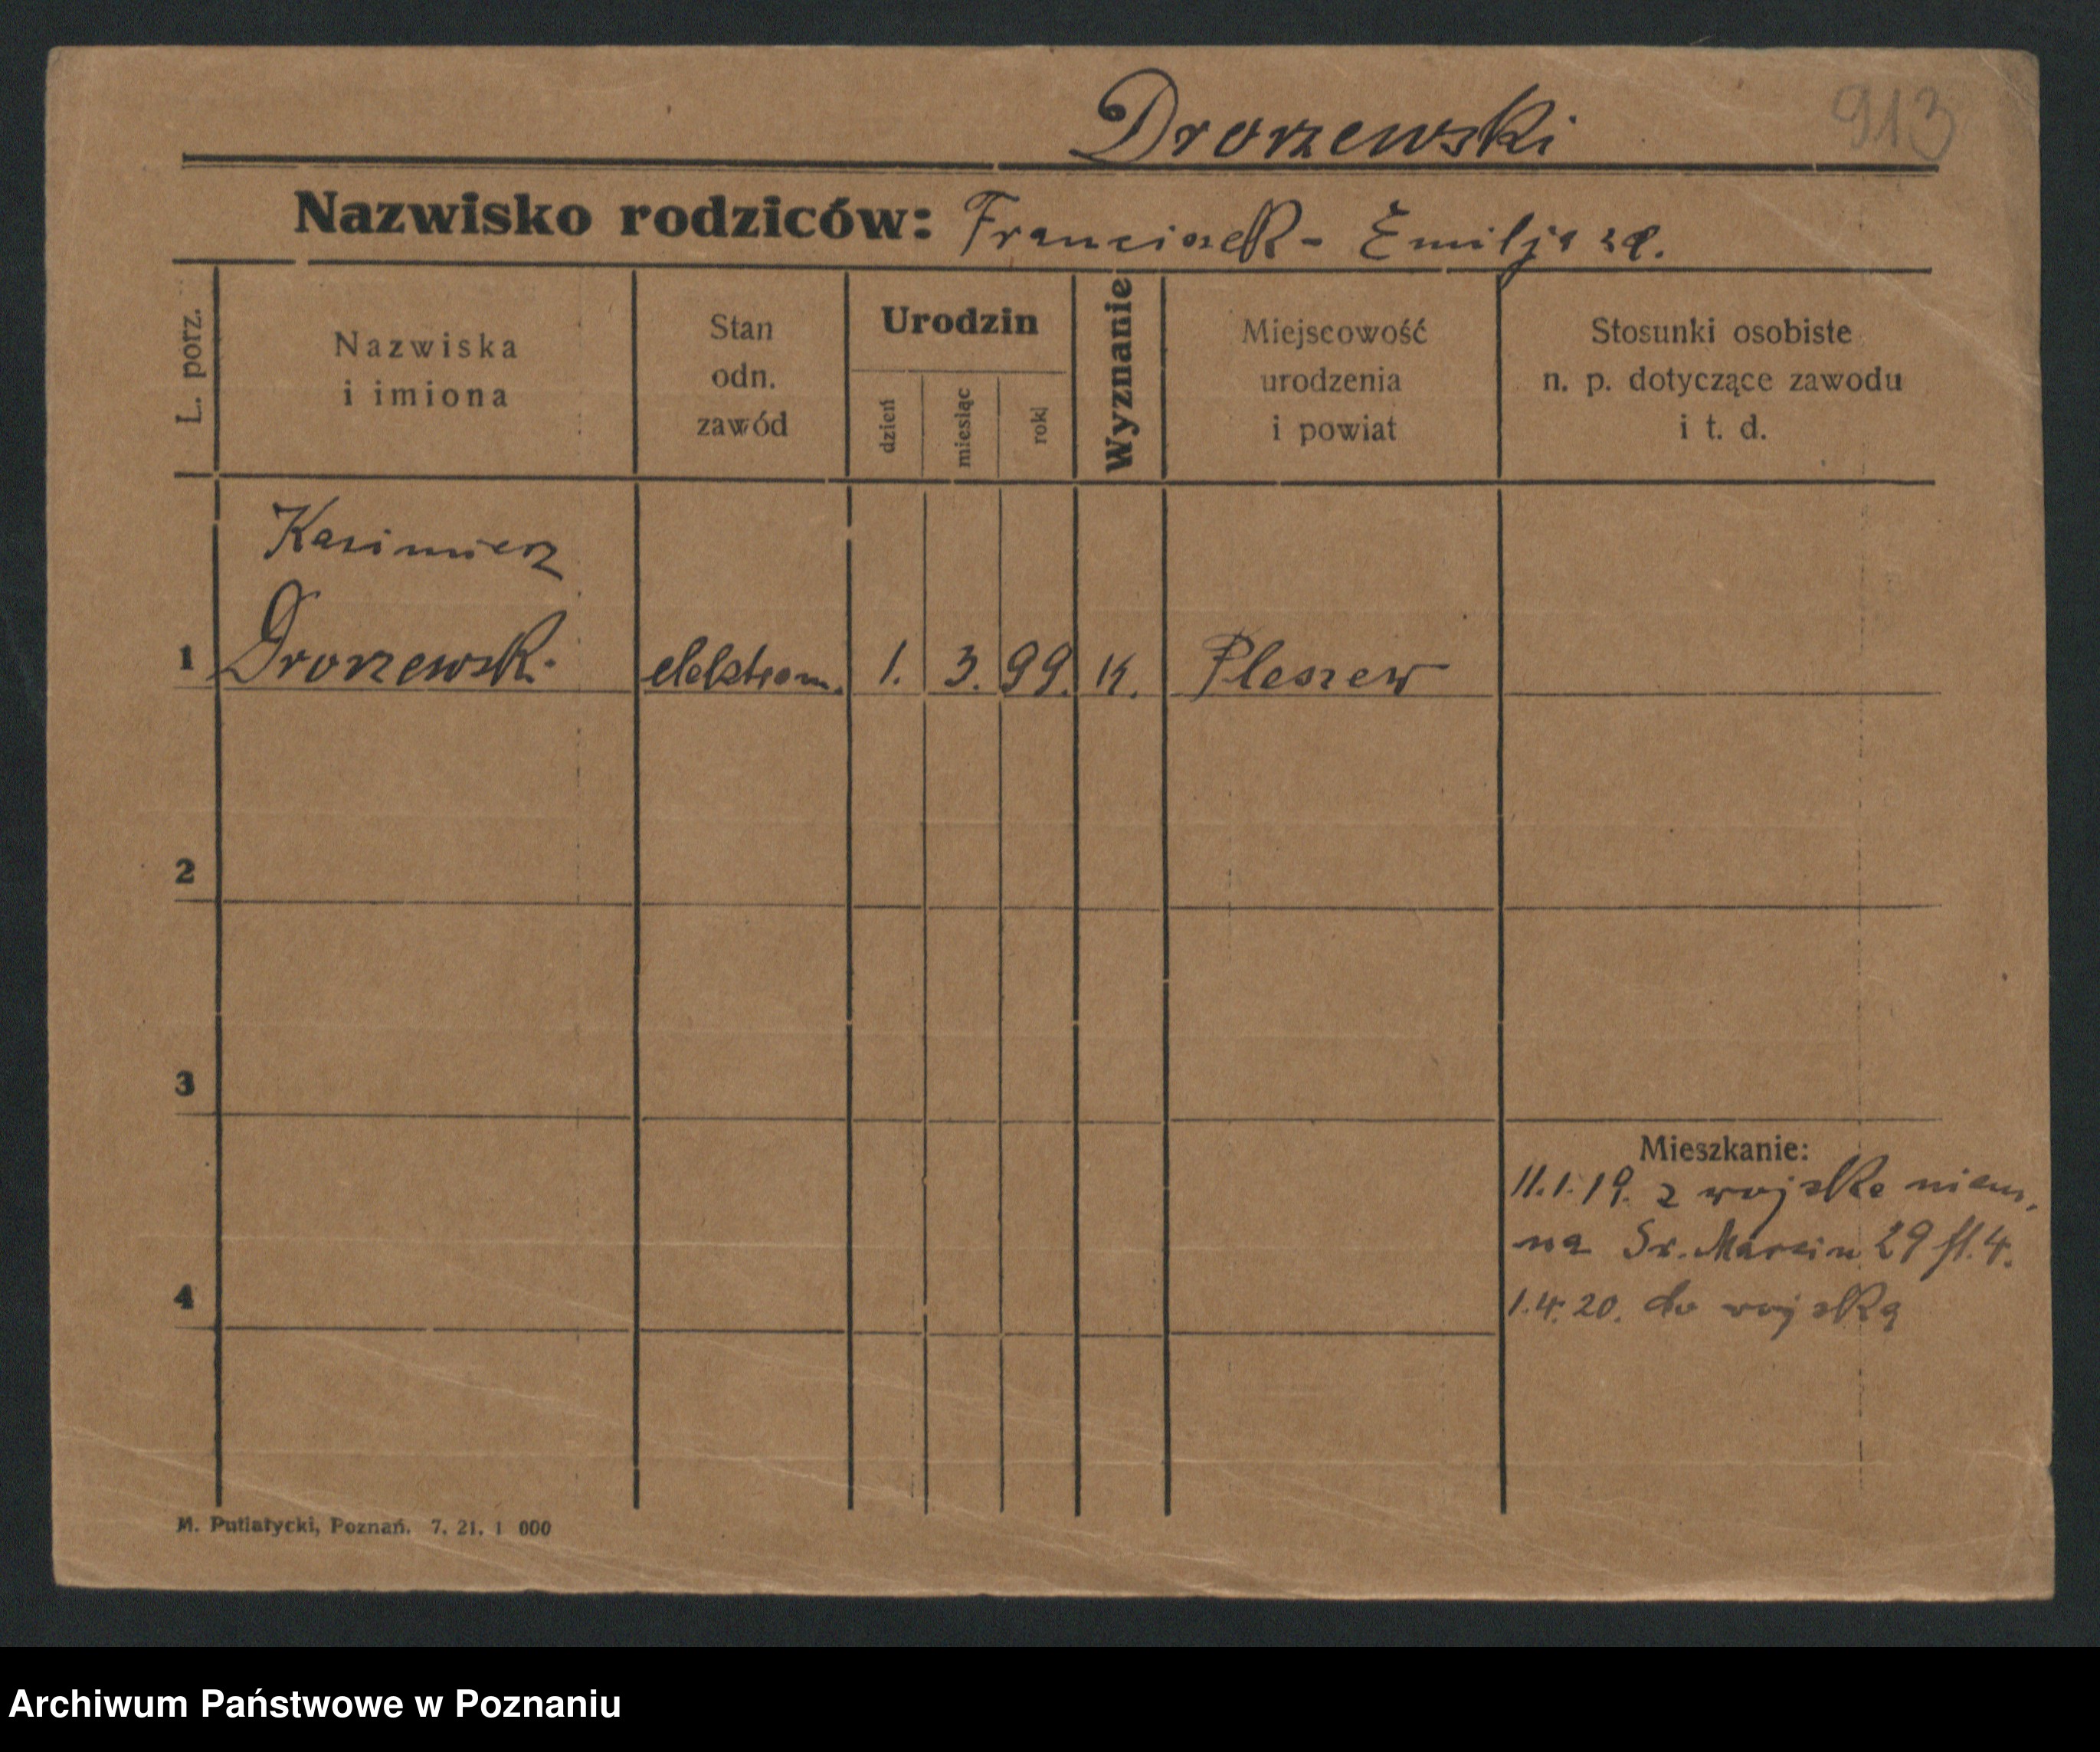 Drorzewski
913
Nazwisko rodziców: Franciszek - Emilja
L. porz.
Nazwiska
i imiona
Stan
odn.
zawód
Urodzin
dzień
miesiąc
rok
Wyznanie
Miejscowość
urodzenia
i powiat
Stosunki osobiste
n. p. dotyczące zawodu
i t. d.
Kazimierz
1 Drorzewski elektrom. 1. 3. 99. K. Pleszew
2
3
Mieszkanie:
11.1.19. z wojska niem.
na Św. Marcin 29
4
1.4.20. do wojska
M. Putiatycki, Poznań. 7. 21. 1 000
Archiwum Państwowe w Poznaniu